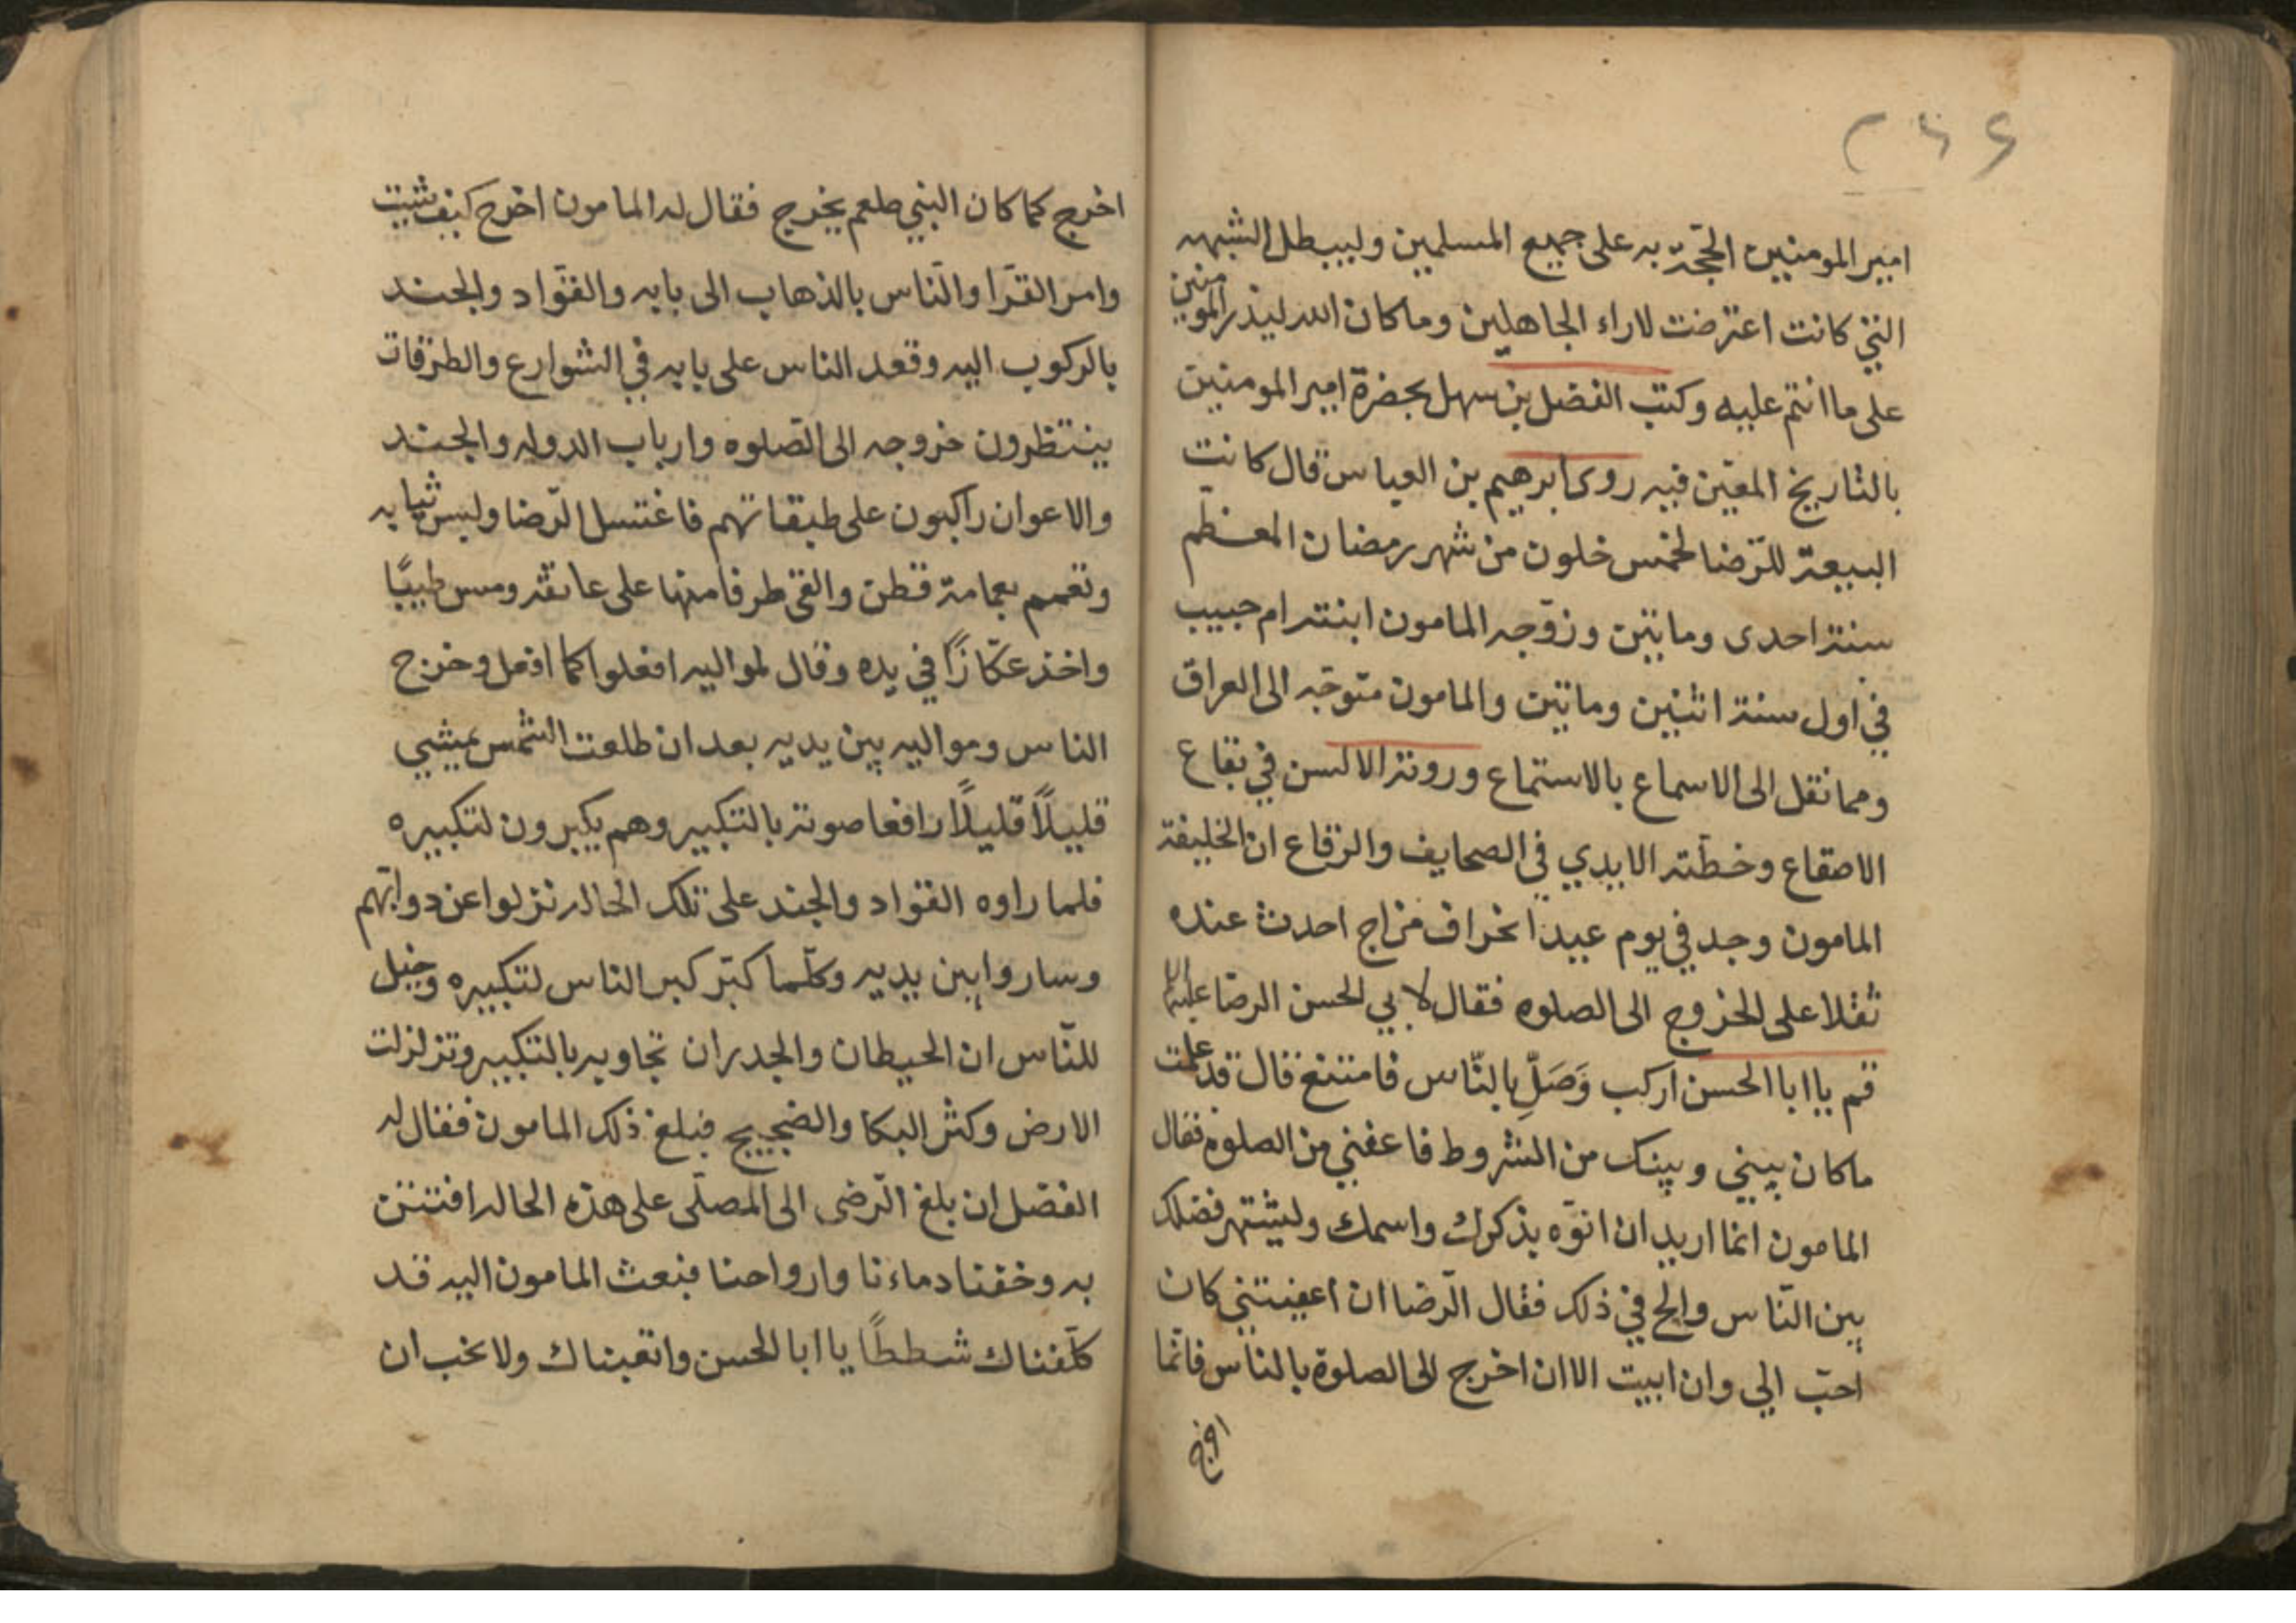 امير المومنين الحجّة به على جميع المسلمين وليبطل الشبهه
التي كانت اعترضت لاراء الجاهلين وما كان الله ليذر المومنين
على ما انتم عليه وكتب الفضل بن سهل بحضرة امير المومنين
بالتاريخ المعيّن فيه روى ابرهيم بن العباس قال كانت
البيعة للرّضا لخمس خلون من شهر رمضان المعظّم
سنة احدى وماتين وزوّجه المامون ابنته ام حبيب
في اول سنة اثنين وماتين والمامون متوجّه الى العراق
ومما نقل الى الاسماع بالاستماع وروته الالسن في بقاع
الاصقاع وخطّته الايدي في الصحايف والرقاع ان الخليفة
المامون وجد في يوم عيد انحراف مزاج احدث عنده
ثقلا على الخروج الى الصلوه فقال لابي الحسن الرضا
قم يا ابا الحسن اركب وَصَلِّ بالنّاس فامتنع قال قد علمت
ما كان بيني وبينك من الشروط فاعفني من الصلوة فقال
المامون انما اريد ان انوّه بذكرك واسمك وليشتهر فضلك
بين النّاس والح في ذلك فقال الرّضا ان اعفيتني كان
احبّ الي وان ابيت الا ان اخرج الى الصلوة بالناس فانّما
اخرج
اخرج كما كان النبي صلعم يخرج فقال له المامون اخرج كيف شيت
وامر القرّا والنّاس بالذهاب الى بابه والقوّاد والجند
بالركوب اليه وقعد الناس على بابه في الشوارع والطرقات
ينتظرون خروجه الى الصّلوه وارباب الدوله والجند
والاعوان راكبون على طبقاتهم فاغتسل الرّضا ولبس ثيابه
وتعمم بعمامة قطن والقى طرفا منها على عاتقه ومس طيبًا
واخذ عكّازًا في يده وقال لمواليه افعلوا كما افعل وخرج
الناس ومواليه بين يديه بعد ان طلعت الشمس يمشي
قليلًا قليلًا رافعا صوته بالتكبير وهم يكبرون لتكبيره
فلما راوه القواد والجند على تلك الحاله نزلوا عن دوابّهم
وساروا بين يديه وكلّما كبّر كبر الناس لتكبيره وخيل
للنّاس ان الحيطان والجدران تجاوبه بالتكبير وتزلزلت
الارض وكثر البكا والضجيج فبلغ ذلك المامون فقال له
الفضل ان بلغ الرّضى الى المصلّى على هذه الحاله افتتن
به وخفنا دماءنا وارواحنا فبعث المامون اليه قد
كلّفناك شططًا يا ابا الحسن واتعبناك ولا نحب ان